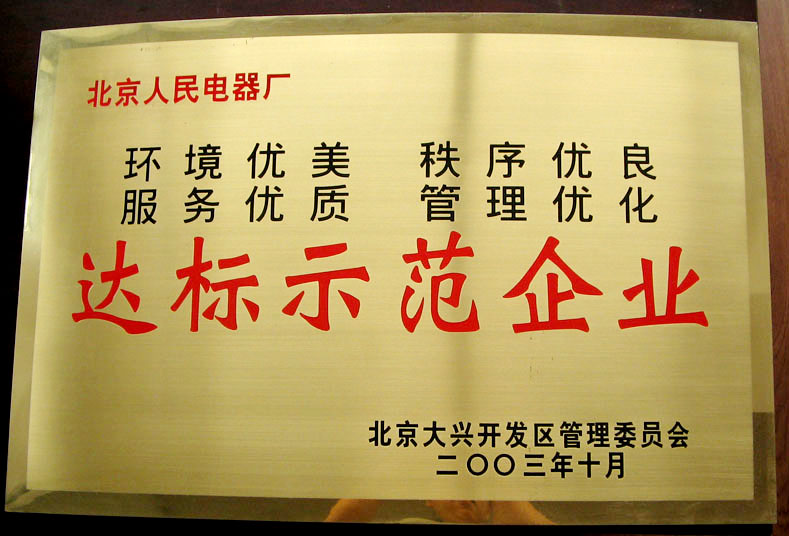 北京人民电器厂
环境优美 秩序优良
服务优质 管理优化
达标示范企业
北京大兴开发区管理委员会
二〇〇三年十月